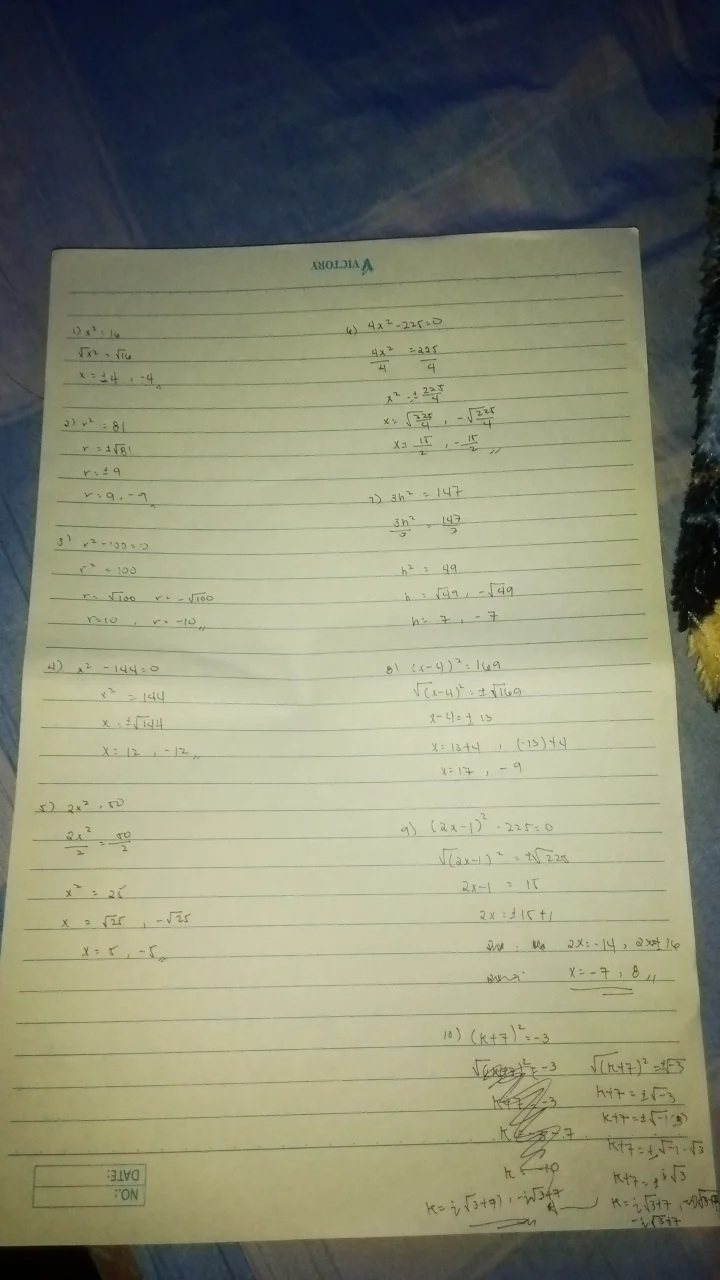 VICTORY
1) x² = 16
√x² = √16
x = ±4 , -4
2) r² = 81
r = ±√81
r = ±9
r = 9, -9
3) r² - 100 = 0
r² = 100
r = √100 r = -√100
r = 10 , r = -10
4) x² - 144 = 0
x² = 144
x = ±√144
x = 12 , -12
5) 2x² = 50
2x²/2 = 50/2
x² = 25
x = √25 , -√25
x = 5 , -5
6) 4x² - 225 = 0
4x²/4 = 225/4
x² = ± 225/4
x = √225/4 , -√225/4
x = 15/2 , -15/2
7) 3h² = 147
3h²/3 = 147/3
h² = 49
h = √49 , -√49
h = 7 , -7
8) (x-4)² = 169
√(x-4)² = ±√169
x-4 = ± 13
x = 13+4 , (-13)+4
x = 17 , -9
9) (2x-1)² - 225 = 0
√(2x-1)² = ±√225
2x-1 = 15
2x = ±15+1
2x = -14 , 2x = 16
x = -7 , 8
10) (k+7)² = -3
k+7 = -3
k = -10
k = i√3+7 , -i√3+7
√(k+7)² = ±√-3
k+7 = ±√-3
k+7 = ±√-1(3)
k+7 = ±√-1 · √3
k+7 = ±i√3
k = i√3+7 ,
-i√3+7
NO.:
DATE: